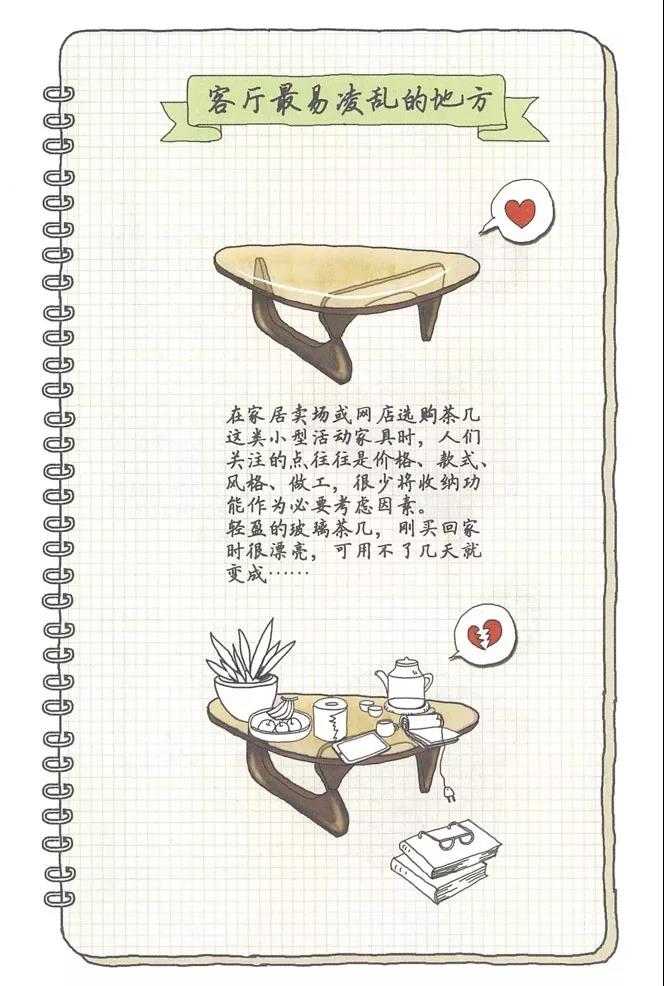 客厅最易凌乱的地方
在家居卖场或网店选购茶几
这类小型活动家具时，人们
关注的点往往是价格、款式、
风格、做工，很少将收纳功
能作为必要考虑因素。
轻盈的玻璃茶几，刚买回家
时很漂亮，可用不了几天就
变成……